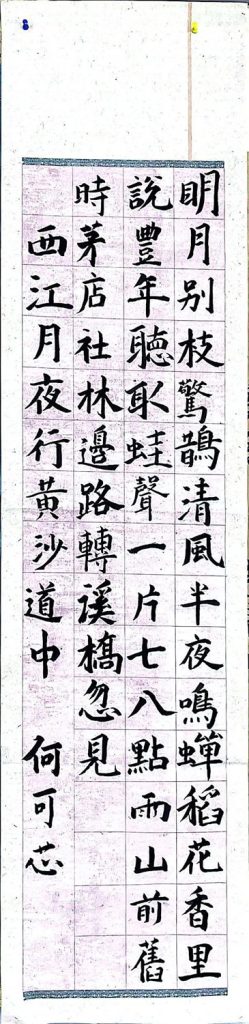 明月别枝驚鵲清風半夜鳴蟬稻花香里
說豐年聽取蛙聲一片七八點雨山前舊
時茅店社林邊路轉溪橋忽見
西江月夜行黃沙道中 何可芯